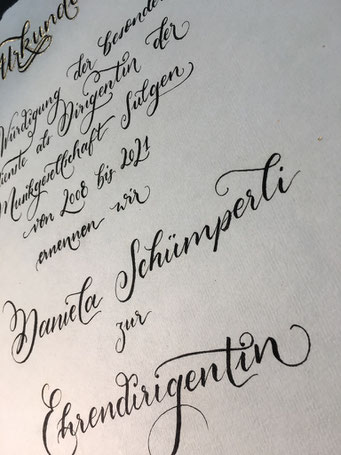 Urkunde
Würdigung der besonderen
dienste als Dirigentin der
Musikgesellschaft Sulgen
von 2008 bis 2021
ernennen wir
Daniela Schümperli
zur
Ehrendirigentin